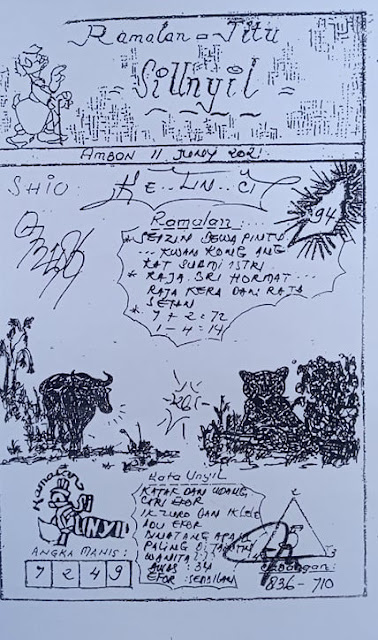 Ramalan - Jitu
Si Unyil
AMBON 11 JUNY 2021
SHIO
KE LIN CI
94
Ramalan:
* SEIZIN DEWA PINTU
... KWAN KONG ANG
KAT SUBMI ISTRI
* RAJA SRI HORMAT ...
RAJA KERA DARI RAJA
SETAN
* 7 + 2 = 72
1 - 4 = 14
Ramalan
Si
UNYIL
ANGKA MANIS:
7 2 4 9
Kata Unyil
KATAK DAN UDANG
CARI EKOR
ADU EKOR
BINATANG
PALING DI
WANITA
34
EKOR: SEMBILAN
836 - 710